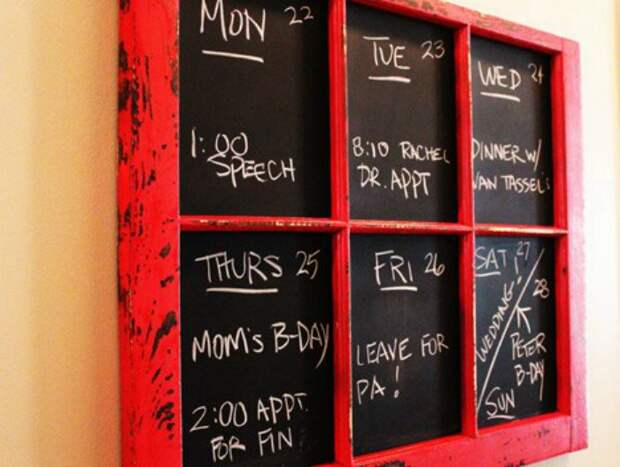 MON 22
1:00
SPEECH
TUE 23
8:10 RACHEL
DR. APPT
WED 24
DINNER W/
VAN TASSEL'S
THURS 25
MOM'S B-DAY
2:00 APPT.
FOR FIN
FRI 26
LEAVE FOR
PA!
SAT 27
WEDDING!
28
PETER
B-DAY
SUN